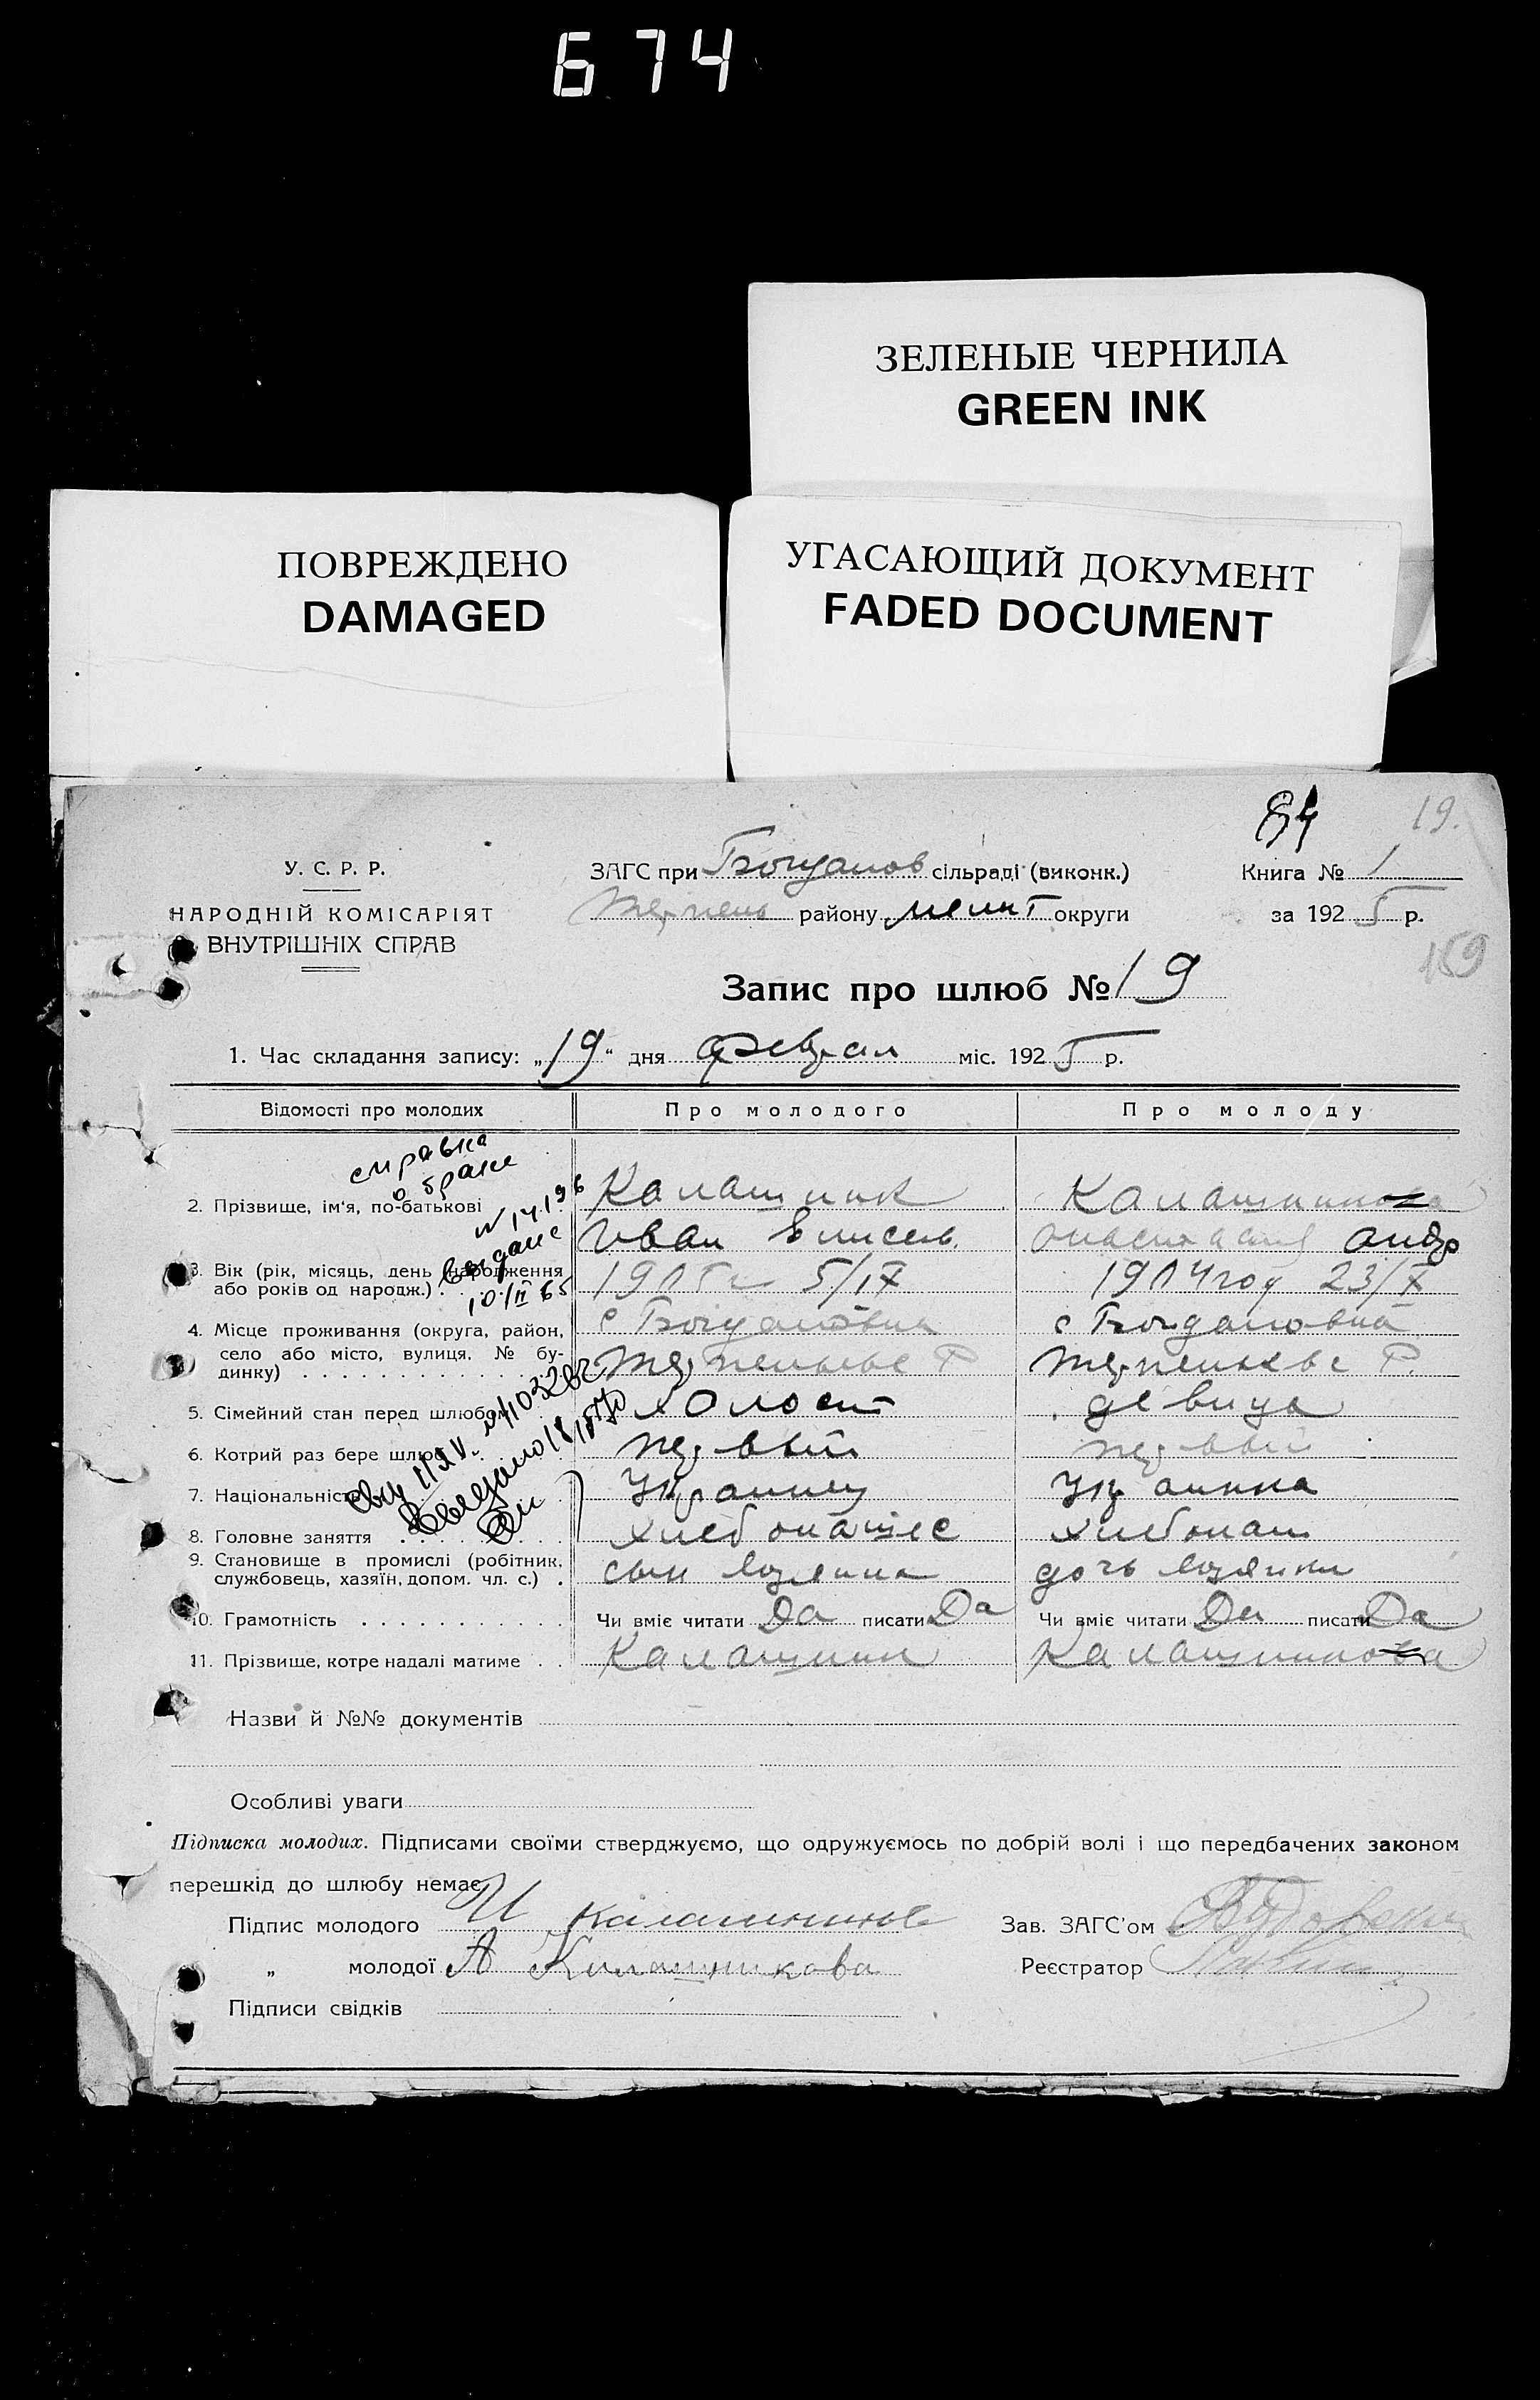 674
ЗЕЛЕНЫЕ ЧЕРНИЛА
GREEN INK
ПОВРЕЖДЕНО
DAMAGED
УГАСАЮЩИЙ ДОКУМЕНТ
FADED DOCUMENT
84 19.
У. С. Р. Р.
НАРОДНІЙ КОМІСАРІЯТ
ВНУТРІШНІХ СПРАВ
ЗАГС при Богданов сільраді (виконк.)
району Мелит округи
Книга № 1
за 1925 р.
159
Запис про шлюб № 19
1. Час складання запису: „19“ дня феврал міс. 1925 р.
Відомості про молодих Про молодого Про молоду
справка
о браке
2. Прізвище, ім'я, по-батькові Калашник
Иван Елисеев. Андр
3. Вік (рік, місяць, день народження
або років од народж.) 5/IX 1904 год 23/X
выдане
10/II 65
4. Місце проживання (округа, район,
село або місто, вулиця, № бу-
динку) с Богдановка с Богдановка
Р Р.
5. Сімейний стан перед шлюбом холост девица
6. Котрий раз бере шлюб первый первый
7. Національність Украинец Украинка
8. Головне заняття хлебопашец хлебопаш
9. Становище в промислі (робітник,
службовець, хазяїн, допом. чл. с.) сын хозяина дочь хозяина
10. Грамотність Чи вміє читати Да писати Да Чи вміє читати Да писати Да
11. Прізвище, котре надалі матиме Калашник
Назви й №№ документів
Особливі уваги
Підписка молодих. Підписами своїми стверджуємо, що одружуємось по добрій волі і що передбачених законом
перешкід до шлюбу немає.
Підпис молодого И Калашников Зав. ЗАГС'ом
„ молодої А Калашникова Реєстратор
Підписи свідків